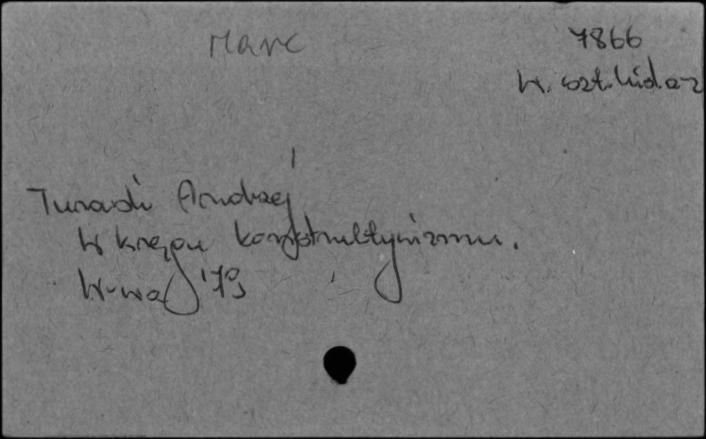 Marc
7866
W. szt. ludoz
Turowski Andrzej
W kręgu konstruktywizmu.
W-wa '79